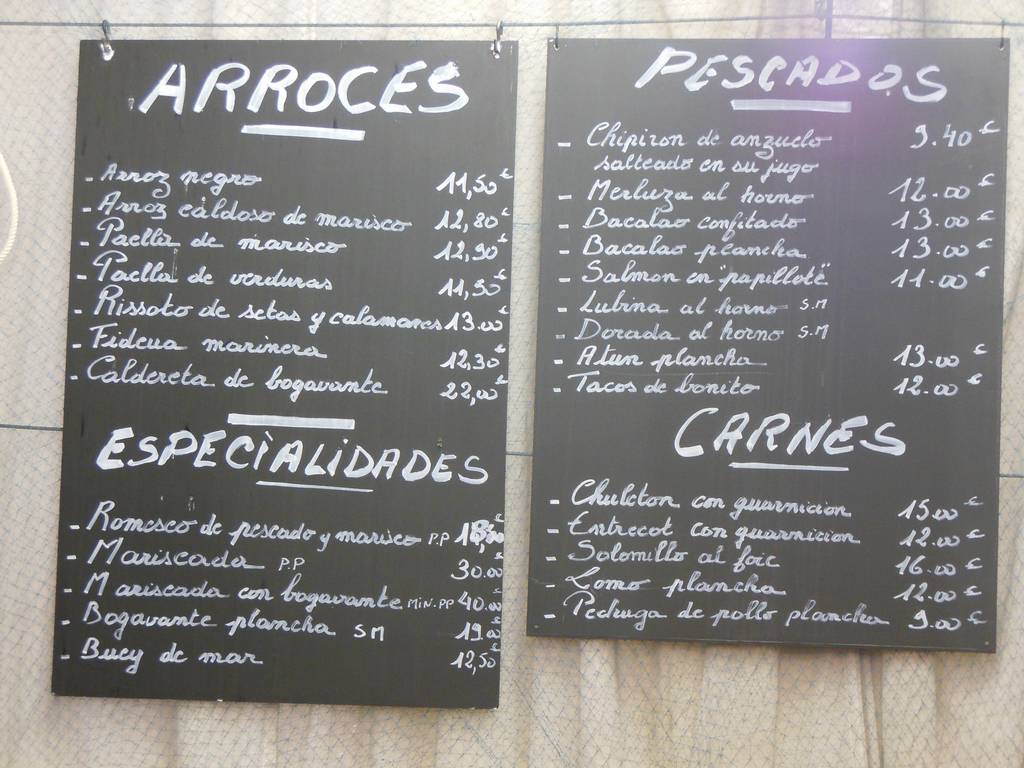 ARROCES
- Arroz negro 11,50€
- Arroz caldoso de marisco 12,80€
- Paella de marisco 12,90€
- Paella de verduras 11,50€
- Rissoto de setas y calamares 13.00€
- Fideua marinera 12,30€
- Caldereta de bogavante 22,00€
ESPECIALIDADES
- Romesco de pescado y marisco P.P
- Mariscada P.P 30.00
- Mariscada con bogavante MIN.PP 40.00
- Bogavante plancha SM 19.00
- Buey de mar 12,50€
PESCADOS
- Chipiron de anzuelo 9.40€
salteado en su jugo
- Merluza al horno 12.00€
- Bacalao confitado 13.00€
- Bacalao plancha 13.00€
- Salmon en "papillote" 11.00€
- Lubina al horno S.M
- Dorada al horno S.M
- Atun plancha 13.00€
- Tacos de bonito 12.00€
CARNES
- Chuleton con guarnicion 15.00€
- Entrecot con guarnicion 12.00€
- Solomillo al foie 16.00€
- Lomo plancha 12.00€
- Pechuga de pollo plancha 9.00€